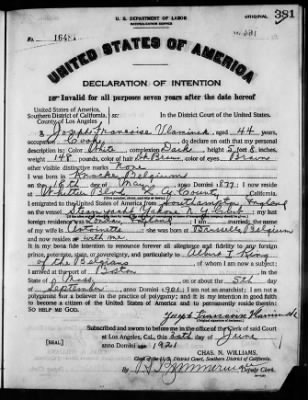 ORIGINAL 381
U. S. DEPARTMENT OF LABOR
NATURALIZATION SERVICE
No. 1648
UNITED STATES OF AMERICA
DECLARATION OF INTENTION
Invalid for all purposes seven years after the date hereof
United States of America,
Southern District of California, ss:
In the District Court of the United States.
County of Los Angeles
I, Joseph Francoise Vlaminck, aged 44 years,
occupation Cook, do declare on oath that my personal
description is: Color White, complexion Dark, height 5 feet 8 inches,
weight 148 pounds, color of hair Dk Brown, color of eyes Brown
other visible distinctive marks None
I was born in Knocke Belgium
on the 16th day of May, anno Domini 1877; I now reside
at Whittier Blvd. L. A. County, California.
I emigrated to the United States of America from Southampton England
on the vessel; my last
foreign residence was England; I am married; the name
of my wife is Antoinette; she was born at Brussels Belgium
and now resides at with me
It is my bona fide intention to renounce forever all allegiance and fidelity to any foreign
prince, potentate, state, or sovereignty, and particularly to Albert I King
of the Belgians, of whom I am now a subject;
I arrived at the port of Boston, in the
State of Mass, on or about the 5th day
of September, anno Domini 1901; I am not an anarchist; I am not a
polygamist nor a believer in the practice of polygamy; and it is my intention in good faith
to become a citizen of the United States of America and to permanently reside therein:
SO HELP ME GOD.
Subscribed and sworn to before me in the office of the Clerk of said Court
at Los Angeles, Cal., this day of June
anno Domini 1921
[SEAL]
CHAS. N. WILLIAMS,
Clerk of the U. S. District Court, Southern District of California.
By Deputy Clerk.